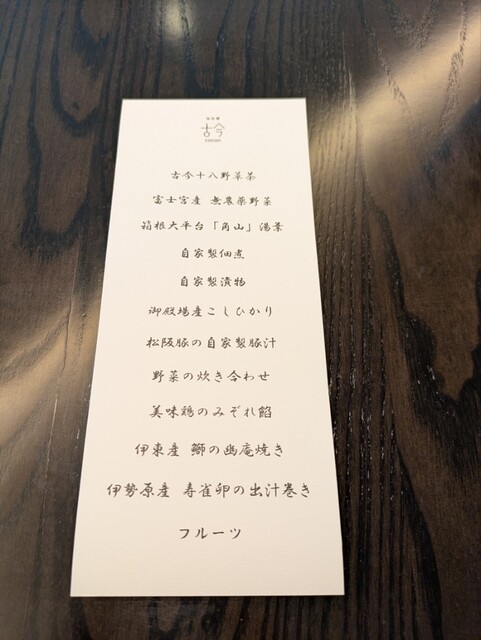 古今
古今十八野草茶
富士宮産 無農薬野菜
箱根大平台「角山」湯葉
自家製佃煮
自家製漬物
御殿場産こしひかり
松阪豚の自家製豚汁
野菜の炊き合わせ
美味鶏のみぞれ餡
伊東産 鰤の幽庵焼き
伊勢原産 寿雀卵の出汁巻き
フルーツ